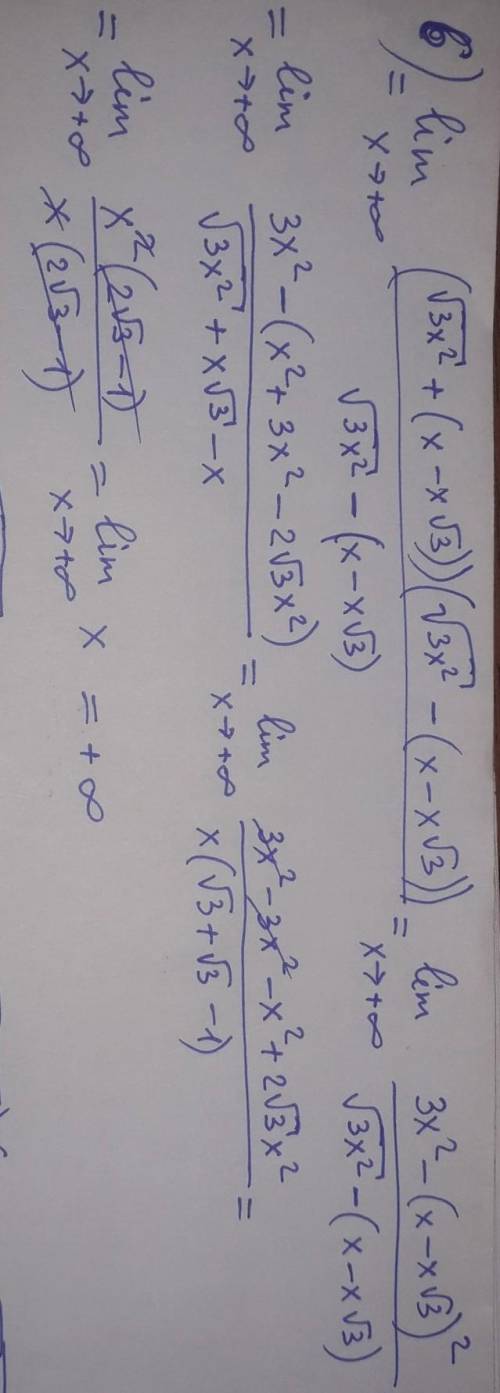 б) = lim x→+∞ (√3x² + (x − x√3))(√3x² − (x − x√3)) / √3x² − (x − x√3) = lim x→+∞ 3x² − (x − x√3)² / √3x² − (x − x√3)
= lim x→+∞ 3x² − (x² + 3x² − 2√3x²) / √3x² + x√3 − x = lim x→+∞ 3x² − 3x² − x² + 2√3x² / x(√3 + √3 − 1) =
= lim x→+∞ x²(2√3 − 1) / x(2√3 − 1) = lim x→+∞ x = +∞